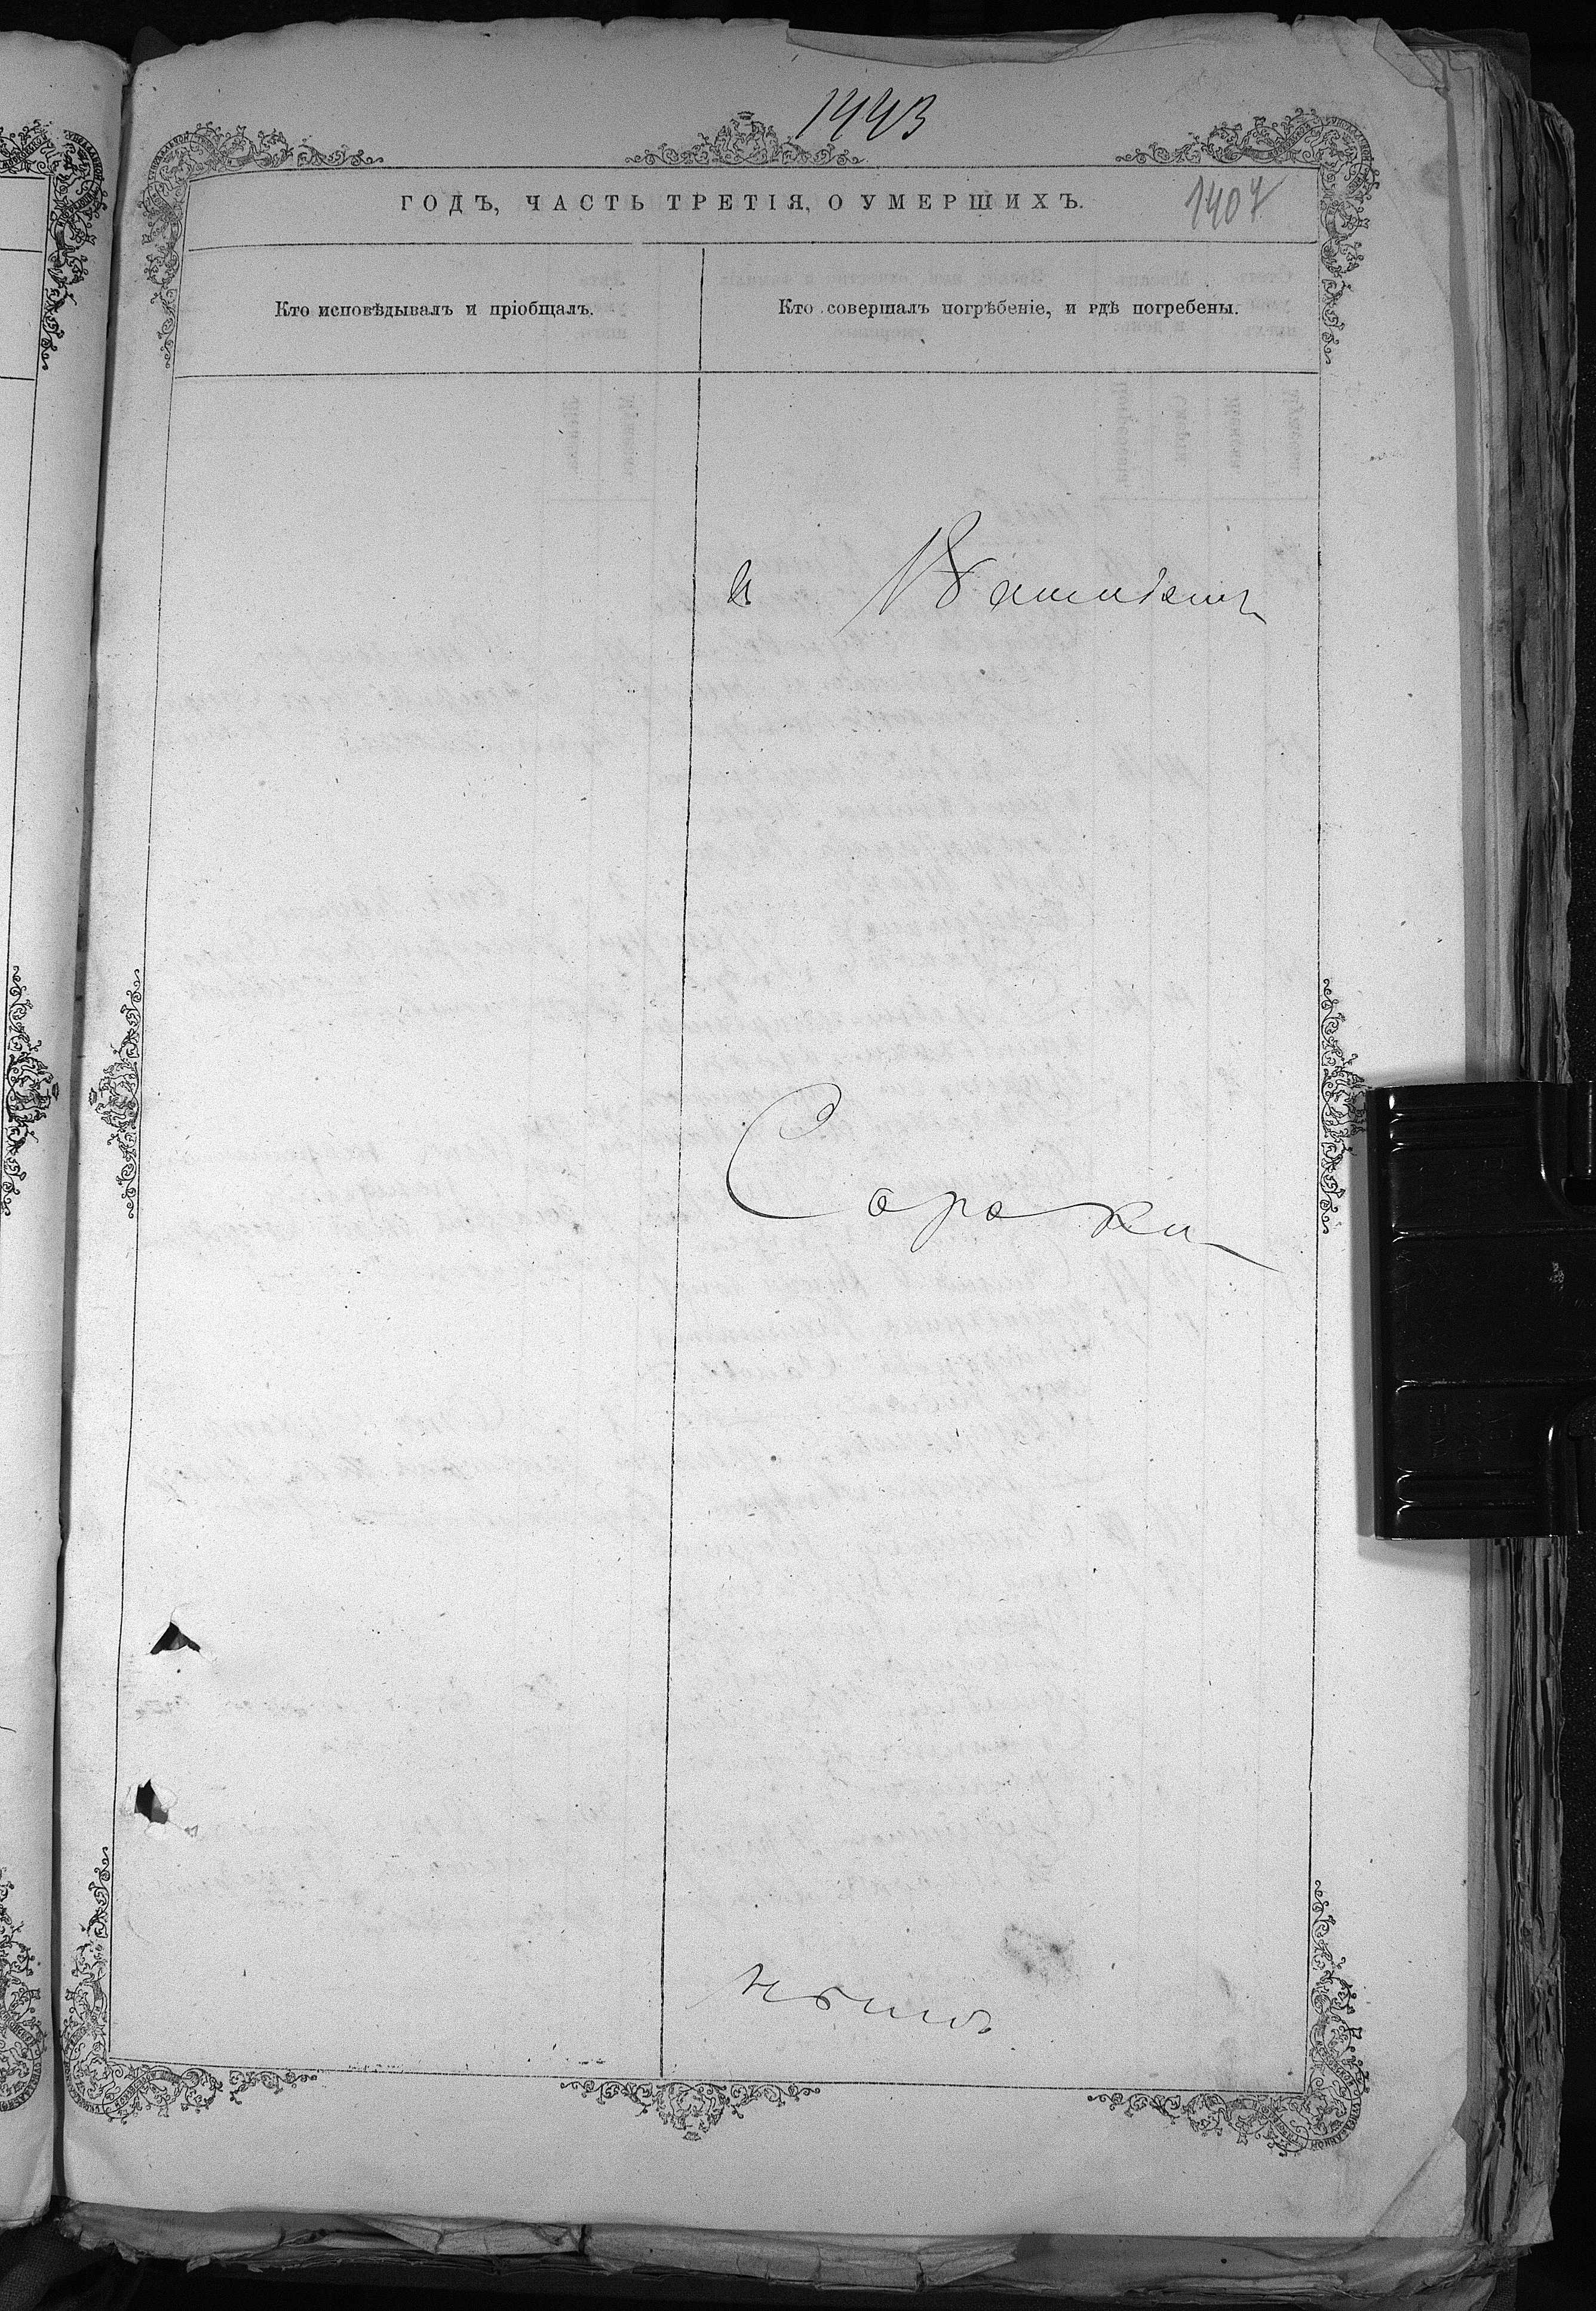 1443
ГОДЪ, ЧАСТЬ ТРЕТІЯ, О УМЕРШИХЪ.
1407
Кто исповѣдывалъ и пріобщалъ.
Кто совершалъ погрѣбеніе, и гдѣ погребены.
и
Сороки